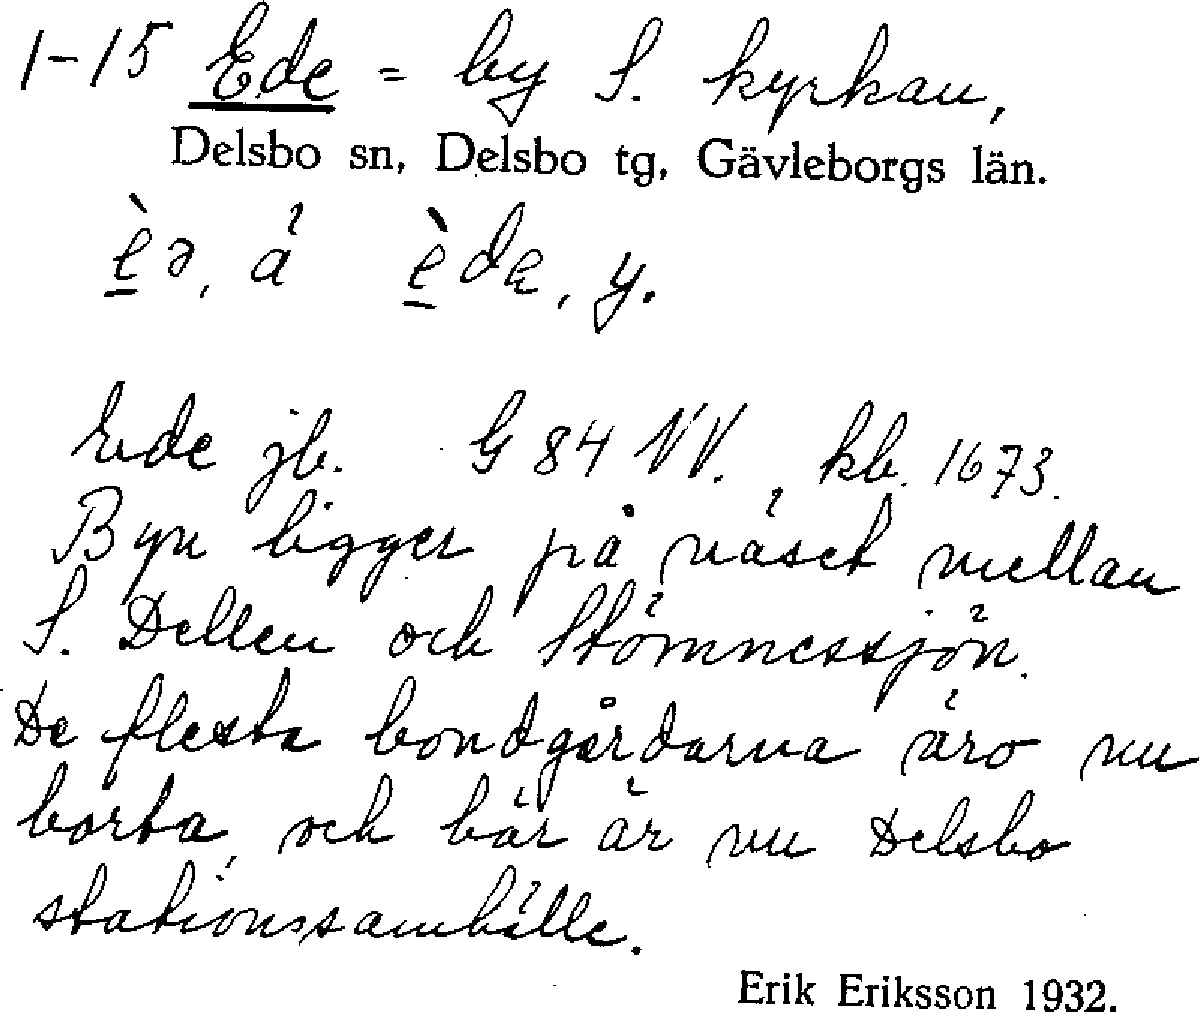 1-15 Ede = by S. kyrkan,
Delsbo sn, Delsbo tg, Gävleborgs län.
è̱ə, ä è̱de, y.
Ede jb. G 84 NV., kb. 1673.
Byn ligger på näset mellan
S. Dellen och Stömnessjön.
De flesta bondgårdarna äro nu
borta, och här är nu Delsbo
stationssamhälle.
Erik Eriksson 1932.